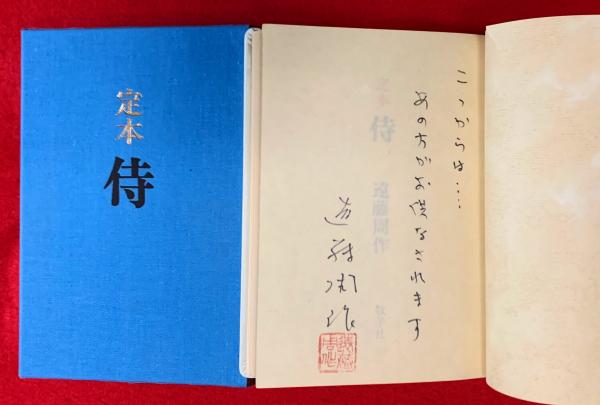 定本
侍
ここからは‥‥
あの方がお供なされます
遠藤周作
定本
侍
遠藤周作